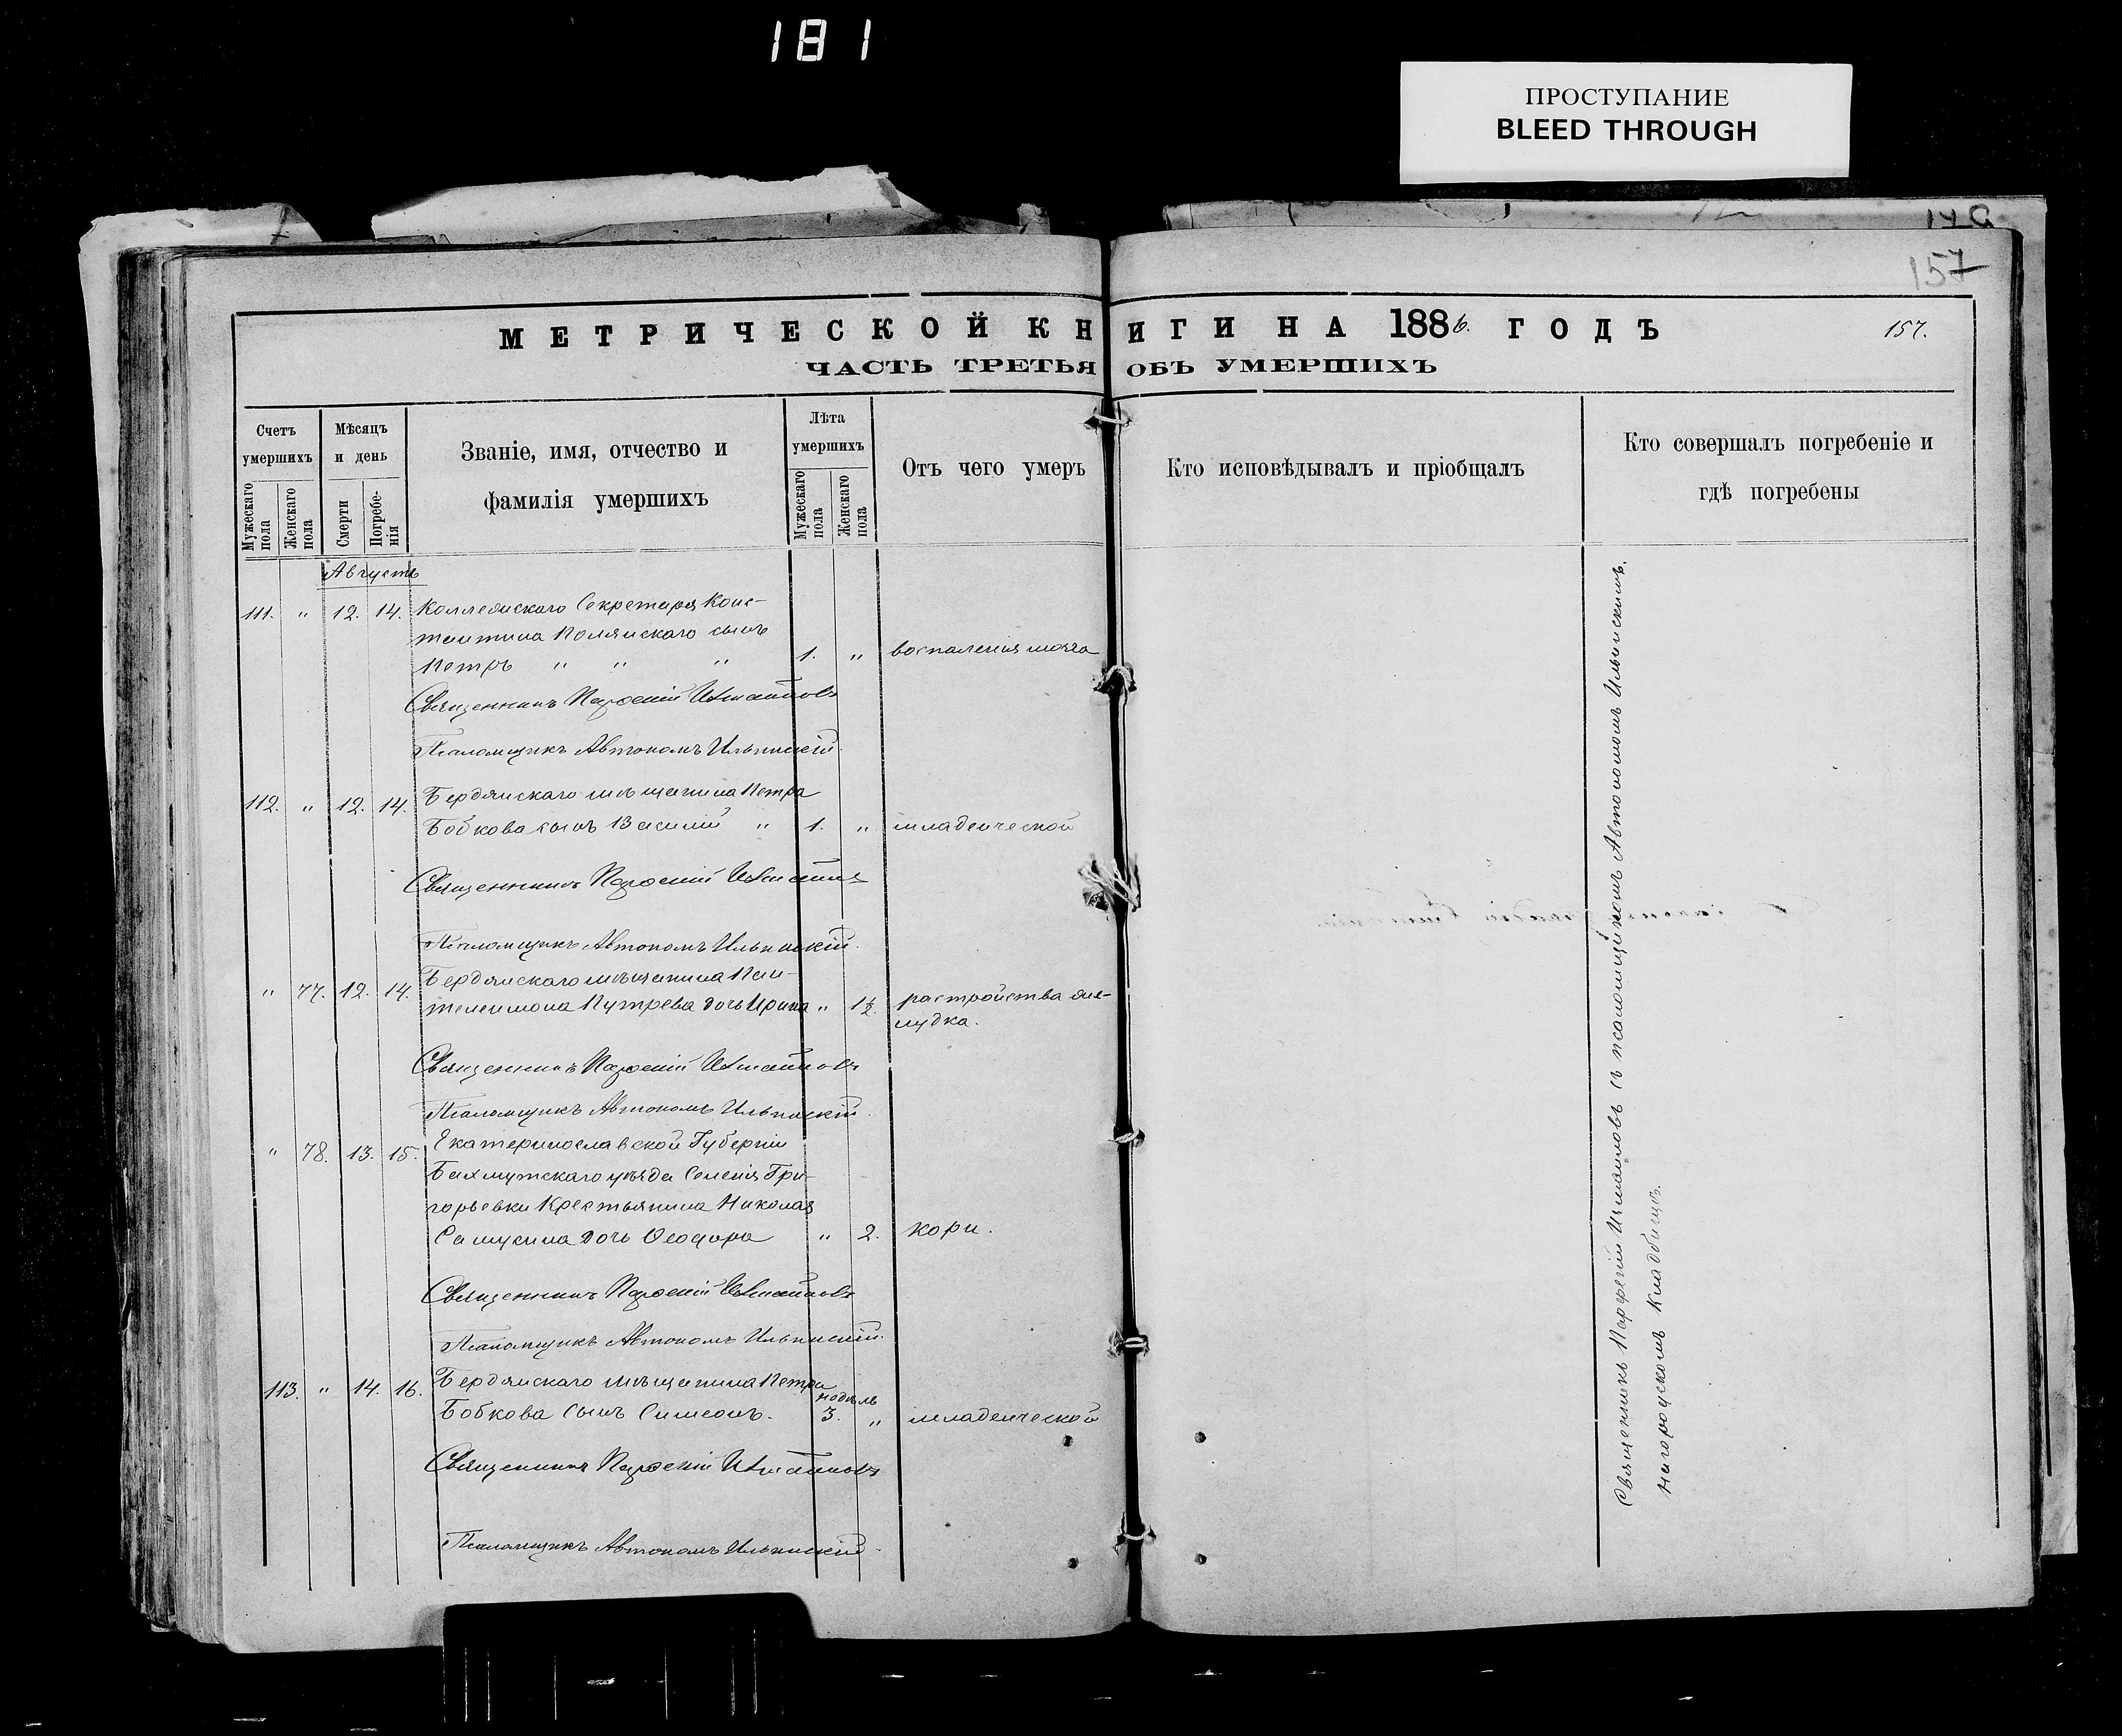 181
ПРОСТУПАНИЕ
BLEED THROUGH
157
МЕТРИЧЕСКОЙ КНИГИ НА 1886. ГОДЪ
157.
ЧАСТЬ ТРЕТЬЯ ОБЪ УМЕРШИХЪ
Счетъ умершихъ
Мужескаго пола
Женскаго пола
Мѣсяцъ и день
Смерти
Погребенія
Званіе, имя, отчество и
фамилія умершихъ
Лѣта умершихъ
Мужескаго пола
Женскаго пола
Отъ чего умеръ
Кто исповѣдывалъ и пріобщалъ
Кто совершалъ погребеніе и
гдѣ погребены
Августъ
111. " 12. 14. Коллежскаго Секретаря Конс-
тантина Полянскаго сынъ
Петръ " " " 1. " воспаленія мозга
Священникъ Парѳеній
Псаломщикъ Автономъ Ильинскій.
112. " 12. 14. Бердянскаго мѣщанина Петра
Бобкова сынъ Василій " 1. " младенческой
Священникъ Парѳеній
Псаломщикъ Автономъ Ильинскій.
" 77. 12. 14. Бердянскаго мѣщанина Пан-
телеимона Путрева дочь Ирина " 1½. растройства же-
лудка.
Священникъ Парѳеній
Псаломщикъ Автономъ Ильинскій.
" 78. 13. 15. Екатеринославской Губерніи
Бахмутскаго уѣзда Селенія Гри-
горьевки Крестьянина Николая
дочь Ѳеодора " 2. кори.
Священникъ Парѳеній
Псаломщикъ Автономъ Ильинскій.
113. " 14. 16. Бердянскаго мѣщанина Петра недѣль
Бобкова Сынъ Симеонъ. 3. " младенческой
Священникъ Парѳеній
Псаломщикъ Автономъ Ильинскій.
Священникъ Парѳеній съ псаломщикомъ Автономомъ Ильинскимъ.
На городскомъ кладбищѣ.